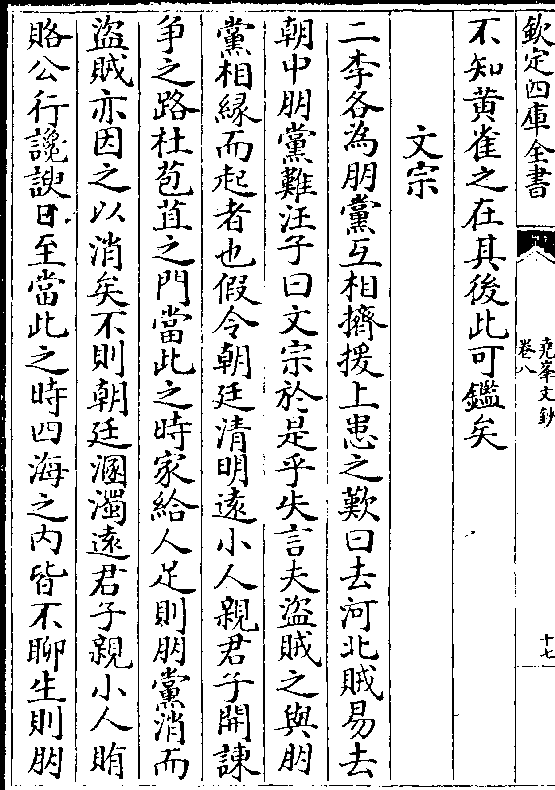 欽定四庫全書
堯峯文鈔
卷八
十七
不知黄雀之在其後此可鑑矣
文宗
二李各為朋黨互相擠援上患之歎曰去河北賊易去
朝中朋黨難汪子曰文宗於是乎失言夫盜賊之與朋
黨相緣而起者也假令朝廷清明遠小人親君子開諫
爭之路杜苞苴之門當此之時家給人足則朋黨消而
盜賊亦因之以消矣不則朝廷溷濁遠君子親小人賄
賂公行讒諛日至當此之時四海之内皆不聊生則朋